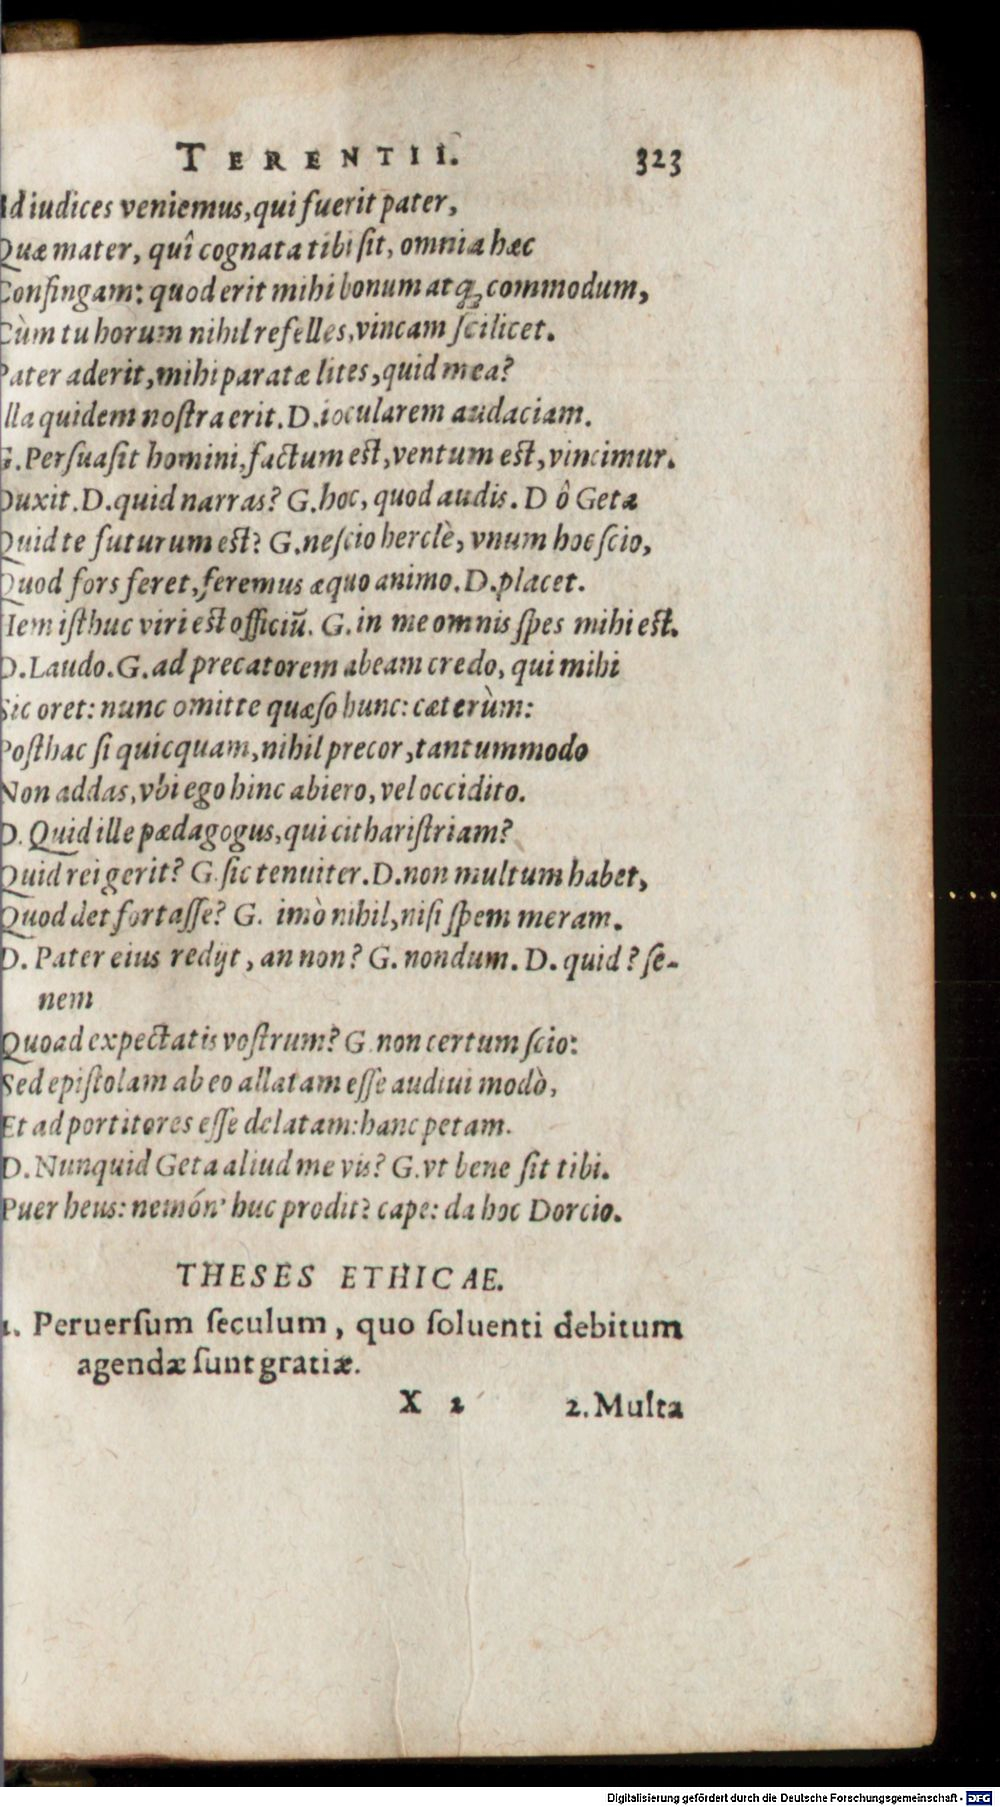 TERENTII. 323
Ad iudices veniemus, qui fuerit pater,
Quæ mater, quî cognata tibi ſit, omnia hæc
Confingam: quod erit mihi bonum atq; commodum,
Cùm tu horum nihil refelles, vincam ſcilicet.
Pater aderit, mihi paratæ lites, quid mea?
Illa quidem noſtra erit. D. iocularem audaciam.
G. Perſuaſit homini, factum eſt, ventum eſt, vincimur.
Duxit. D. quid narras? G. hoc, quod audis. D ô Geta
Quid te futurum eſt? G. neſcio herclè, vnum hoc ſcio,
Quod fors feret, feremus æquo animo. D. placet.
Hem iſthuc viri eſt officiũ. G. in me omnis ſpes mihi eſt.
D. Laudo. G. ad precatorem abeam credo, qui mihi
Sic oret: nunc omitte quæſo hunc: cæterùm:
Poſthac ſi quicquam, nihil precor, tantummodo
Non addas, vbi ego hinc abiero, vel occidito.
D. Quid ille pædagogus, qui cithariſtriam?
Quid rei gerit? G. ſic tenuiter. D. non multum habet,
Quod det fortaſſe? G. imò nihil, niſi ſpem meram.
D. Pater eius redijt, an non? G. nondum. D. quid? ſe-
nem
Quoad expectatis voſtrum? G. non certum ſcio:
Sed epiſtolam ab eo allatam eſſe audiui modò,
Et ad portitores eſſe delatam: hanc petam.
D. Nunquid Geta aliud me vis? G. vt bene ſit tibi.
Puer heus: nemón' huc prodit? cape: da hoc Dorcio.
THESES ETHICAE.
1. Peruerſum ſeculum, quo ſoluenti debitum
agendæ ſunt gratiæ.
X 2 2. Multa
Digitalisierung gefördert durch die Deutsche Forschungsgemeinschaft - DFG